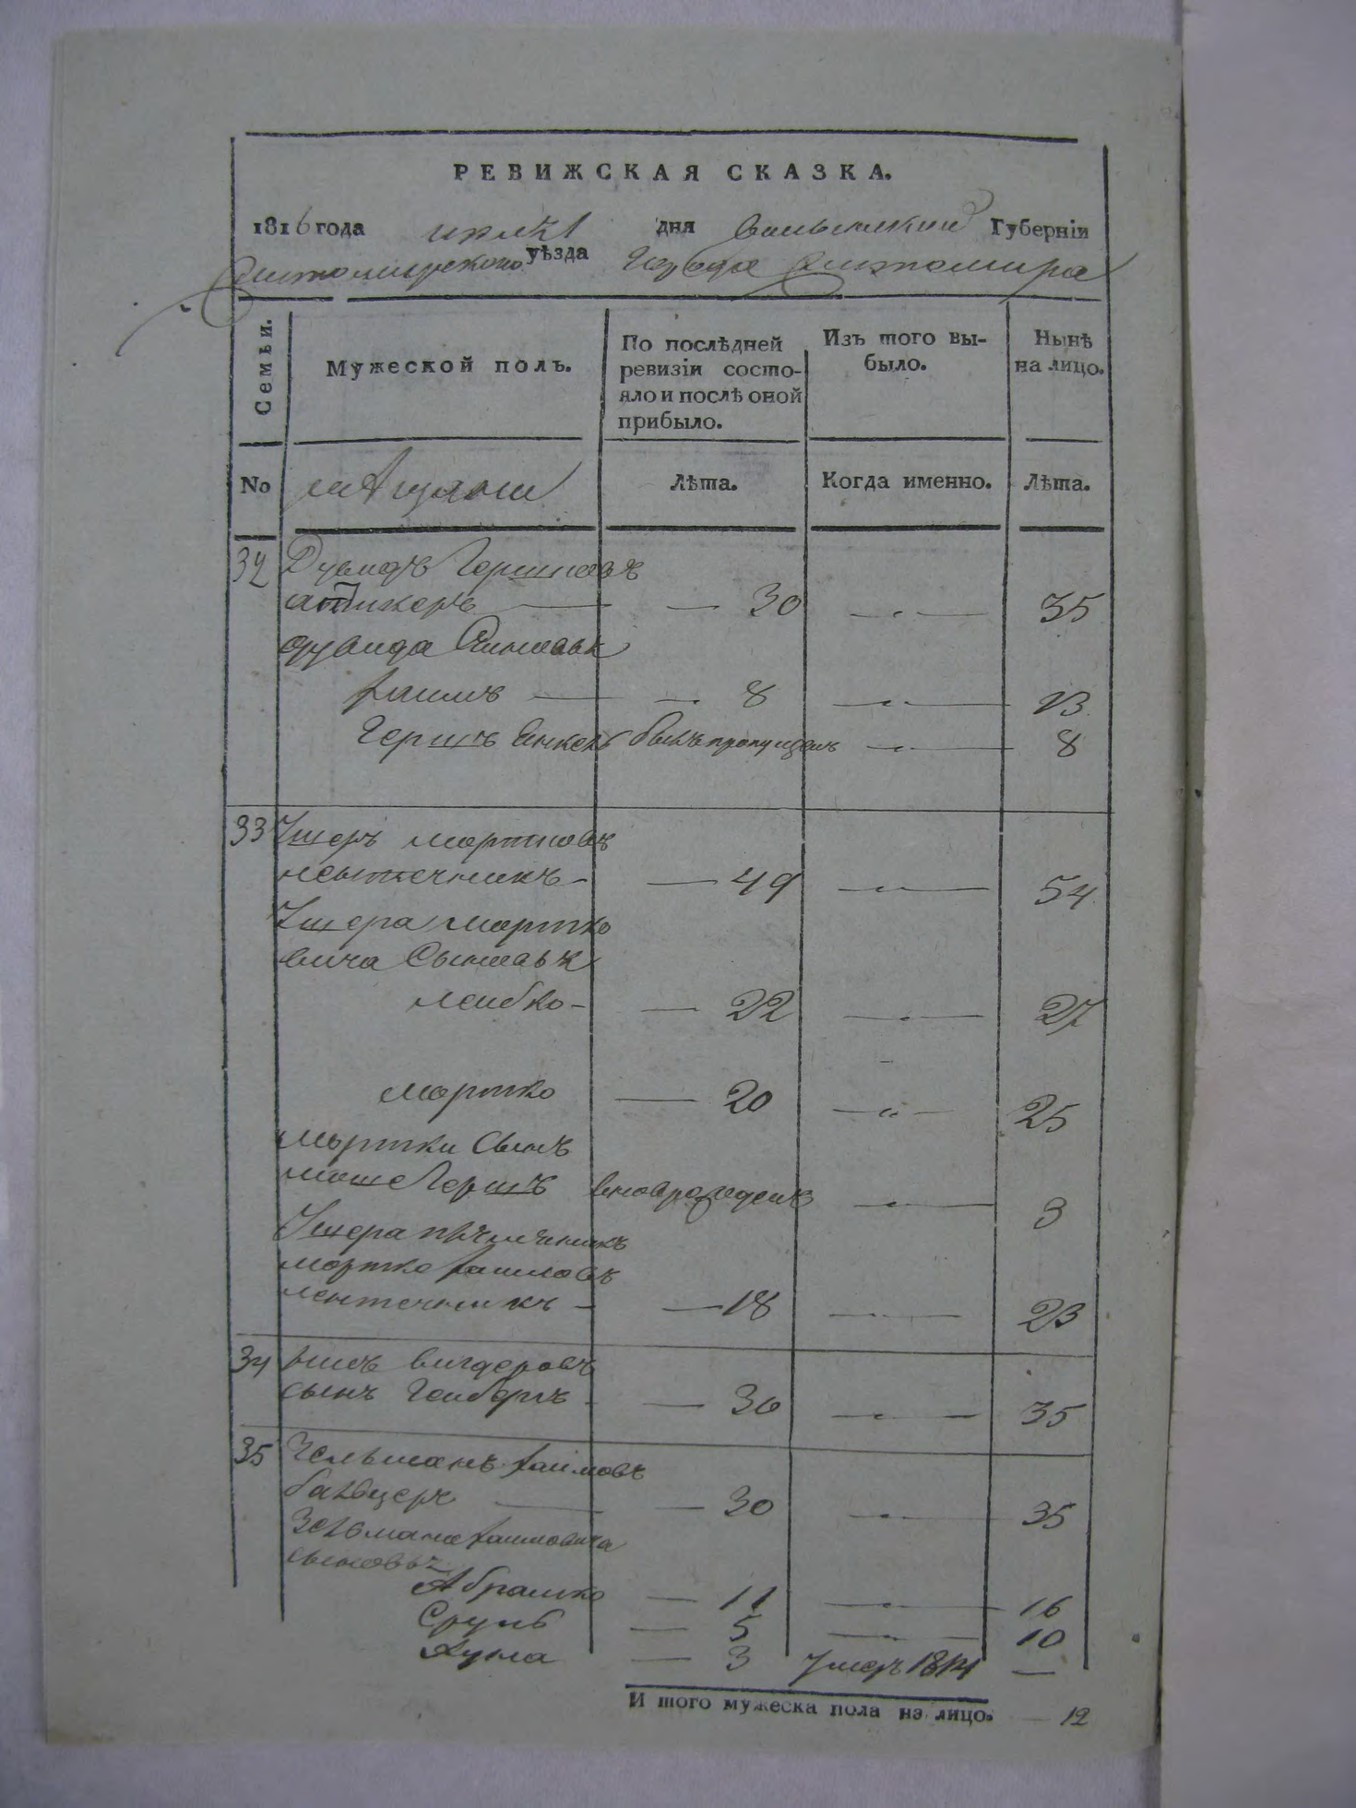 РЕВИЖСКАЯ СКАЗКА.
1816 года дня Волынской Губернїи
Житомирскаго уѣзда Города Житомира
Семьи.
Мужеской полъ.
По послѣдней ревизїи состо-
яло и послѣ оной прибыло.
Изъ того вы-
было.
Нынѣ
на лицо.
No мещяне Лѣта. Когда именно. Лѣта.
32 Дувидъ Гершковъ
— 30 — 35
дувида Сыновья
Хаимъ — 8 — 13
Гершъ Янкель былъ пропущенъ — 8
33 Ушеръ Мортковъ
— 49 — 54
Ушера Мортко
вича Сыновья
Лейбко — 22 — 27
Мортко — 20 — 25
Мортки Сынъ
Моше Гершъ вновърожденъ — 3
Ушера племяникъ
Мортко Хаимовъ
— 18 — 23
34 вигдоровъ
сынъ — 30 — 35
35 Зельманъ Хаимовъ
— 30 — 35
Зельмана Хаимовича
сыновья
Абрамко — 11 — 16
Сруль — 5 — 10
— 3 Умеръ 1814 —
И того мужеска пола на лицо. — 12